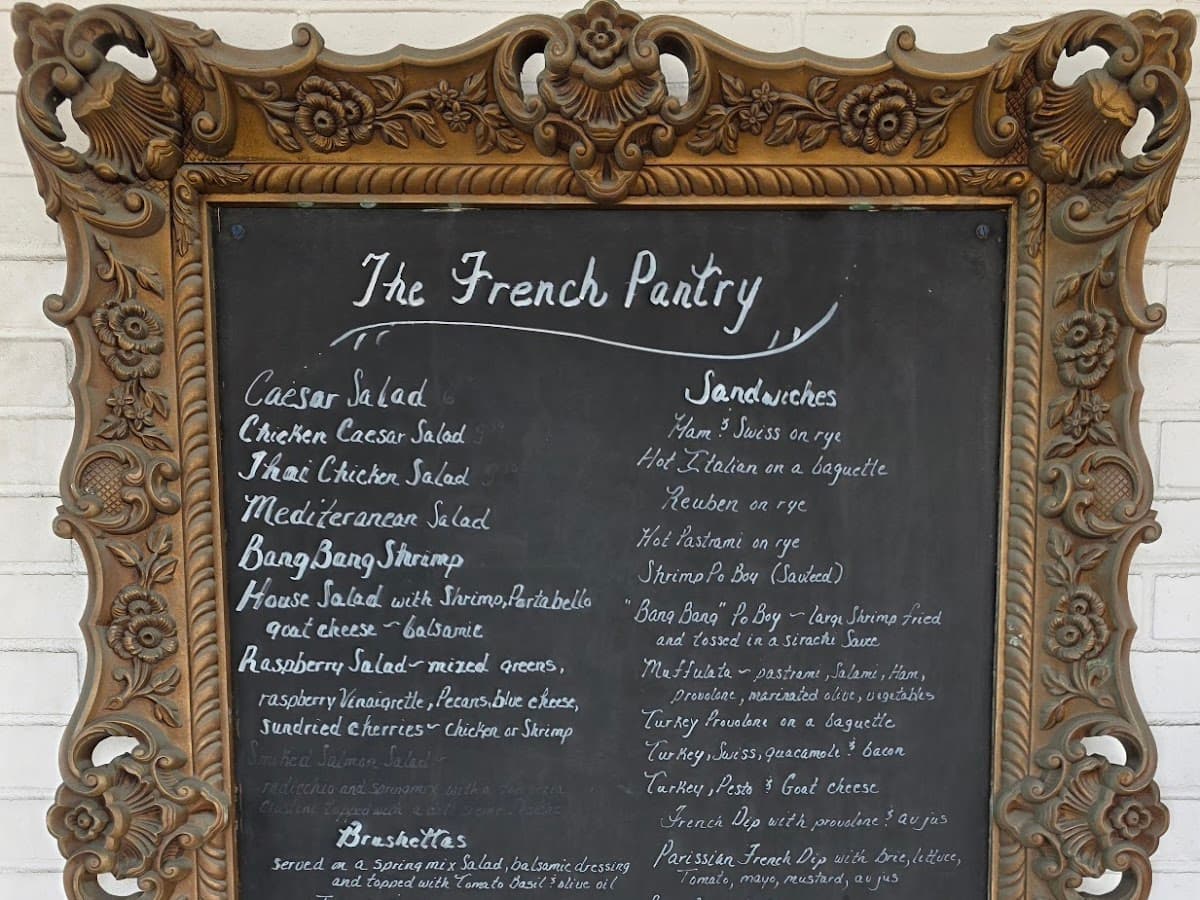 The French Pantry
Caesar Salad
Chicken Caesar Salad
Thai Chicken Salad
Mediteranean Salad
Bang Bang Shrimp
House Salad with Shrimp, Portabello
goat cheese ~ balsamic
Raspberry Salad ~ mixed greens,
raspberry Vinaigrette, Pecans, blue cheese,
sundried cherries ~ chicken or Shrimp
Smoked Salmon Salad ~
radicchio and springmix with a
topped with a
Brushettas
served on a spring mix Salad, balsamic dressing
and topped with Tomato Basil & olive oil
Sandwiches
Ham & Swiss on rye
Hot Italian on a baguette
Reuben on rye
Hot Pastrami on rye
Shrimp Po Boy (Sauteed)
"Bang Bang" Po Boy ~ large Shrimp fried
and tossed in a sirachi Sauce
Muffulata ~ pastrami, Salami, Ham,
provolone, marinated olive, vegetables
Turkey Provolone on a baguette
Turkey, Swiss, guacamole & bacon
Turkey, Pesto & Goat cheese
French Dip with provolone & au jus
Parissian French Dip with brie, lettuce,
Tomato, mayo, mustard, au jus